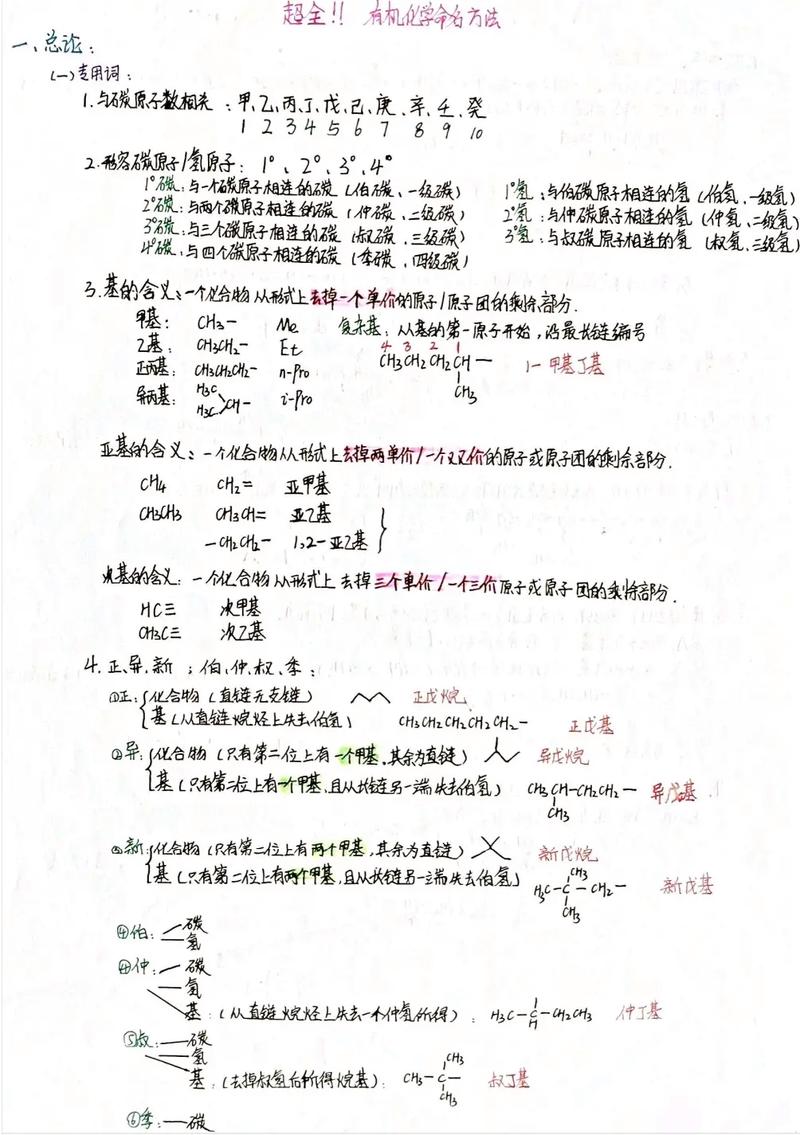 超全!! 有机化学命名方法
一、总论:
(一)专用词:
1.与碳原子数相关:甲、乙、丙、丁、戊、己、庚、辛、壬、癸
1 2 3 4 5 6 7 8 9 10
2.形容碳原子/氢原子: 1°、2°、3°、4°
1°碳:与一个碳原子相连的碳(伯碳、一级碳) 1°氢:与伯碳原子相连的氢(伯氢、一级氢)
2°碳:与两个碳原子相连的碳(仲碳、二级碳) 2°氢:与仲碳原子相连的氢(仲氢、二级氢)
3°碳:与三个碳原子相连的碳(叔碳、三级碳) 3°氢:与叔碳原子相连的氢(叔氢、三级氢)
4°碳:与四个碳原子相连的碳(季碳、四级碳)
3.基的含义:一个化合物从形式上去掉一个单价的原子/原子团的剩余部分.
甲基: CH3— Me 复杂基:从基的第一原子开始,沿最长链编号
4 3 2 1
乙基: CH3CH2— Et CH3CH2CH2CH— 1-甲基丁基
正丙基: CH3CH2CH2— n-Pro CH3
异丙基: H3C H3C >CH— i-Pro
亚基的含义:一个化合物从形式上去掉两单价/一个双价的原子或原子团的剩余部分.
CH4 CH2= 亚甲基
CH3CH3 CH3CH= 亚乙基
—CH2CH2— 1,2-亚乙基
次基的含义:一个化合物从形式上去掉三个单价/一个三价原子或原子团的剩余部分.
HC≡ 次甲基
CH3C≡ 次乙基
4.正、异、新;伯、仲、叔、季:
①正:{化合物(直链无支链) 正戊烷
基(从直链烷烃上失去伯氢) CH3CH2CH2CH2CH2— 正戊基
②异:{化合物(只有第二位上有一个甲基,其余为直链) 异戊烷
基(只有第二位上有一个甲基,且从长链另一端失去伯氢) CH3CH—CH2CH2— 异戊基
CH3
③新:{化合物(只有第二位上有两个甲基,其余为直链) 新戊烷
CH3
基(只有第二位上有两个甲基,且从长链另一端失去伯氢) H3C—C—CH2— 新戊基
CH3
④伯:碳
氢
④仲:碳
氢
基:(从直链烷烃上失去一个仲氢所得): H3C—C—CH2CH3 仲丁基
H
⑤叔:碳
氢
CH3
基:(去掉叔氢后所得烷基): CH3—C— 叔丁基
CH3
⑥季:—碳